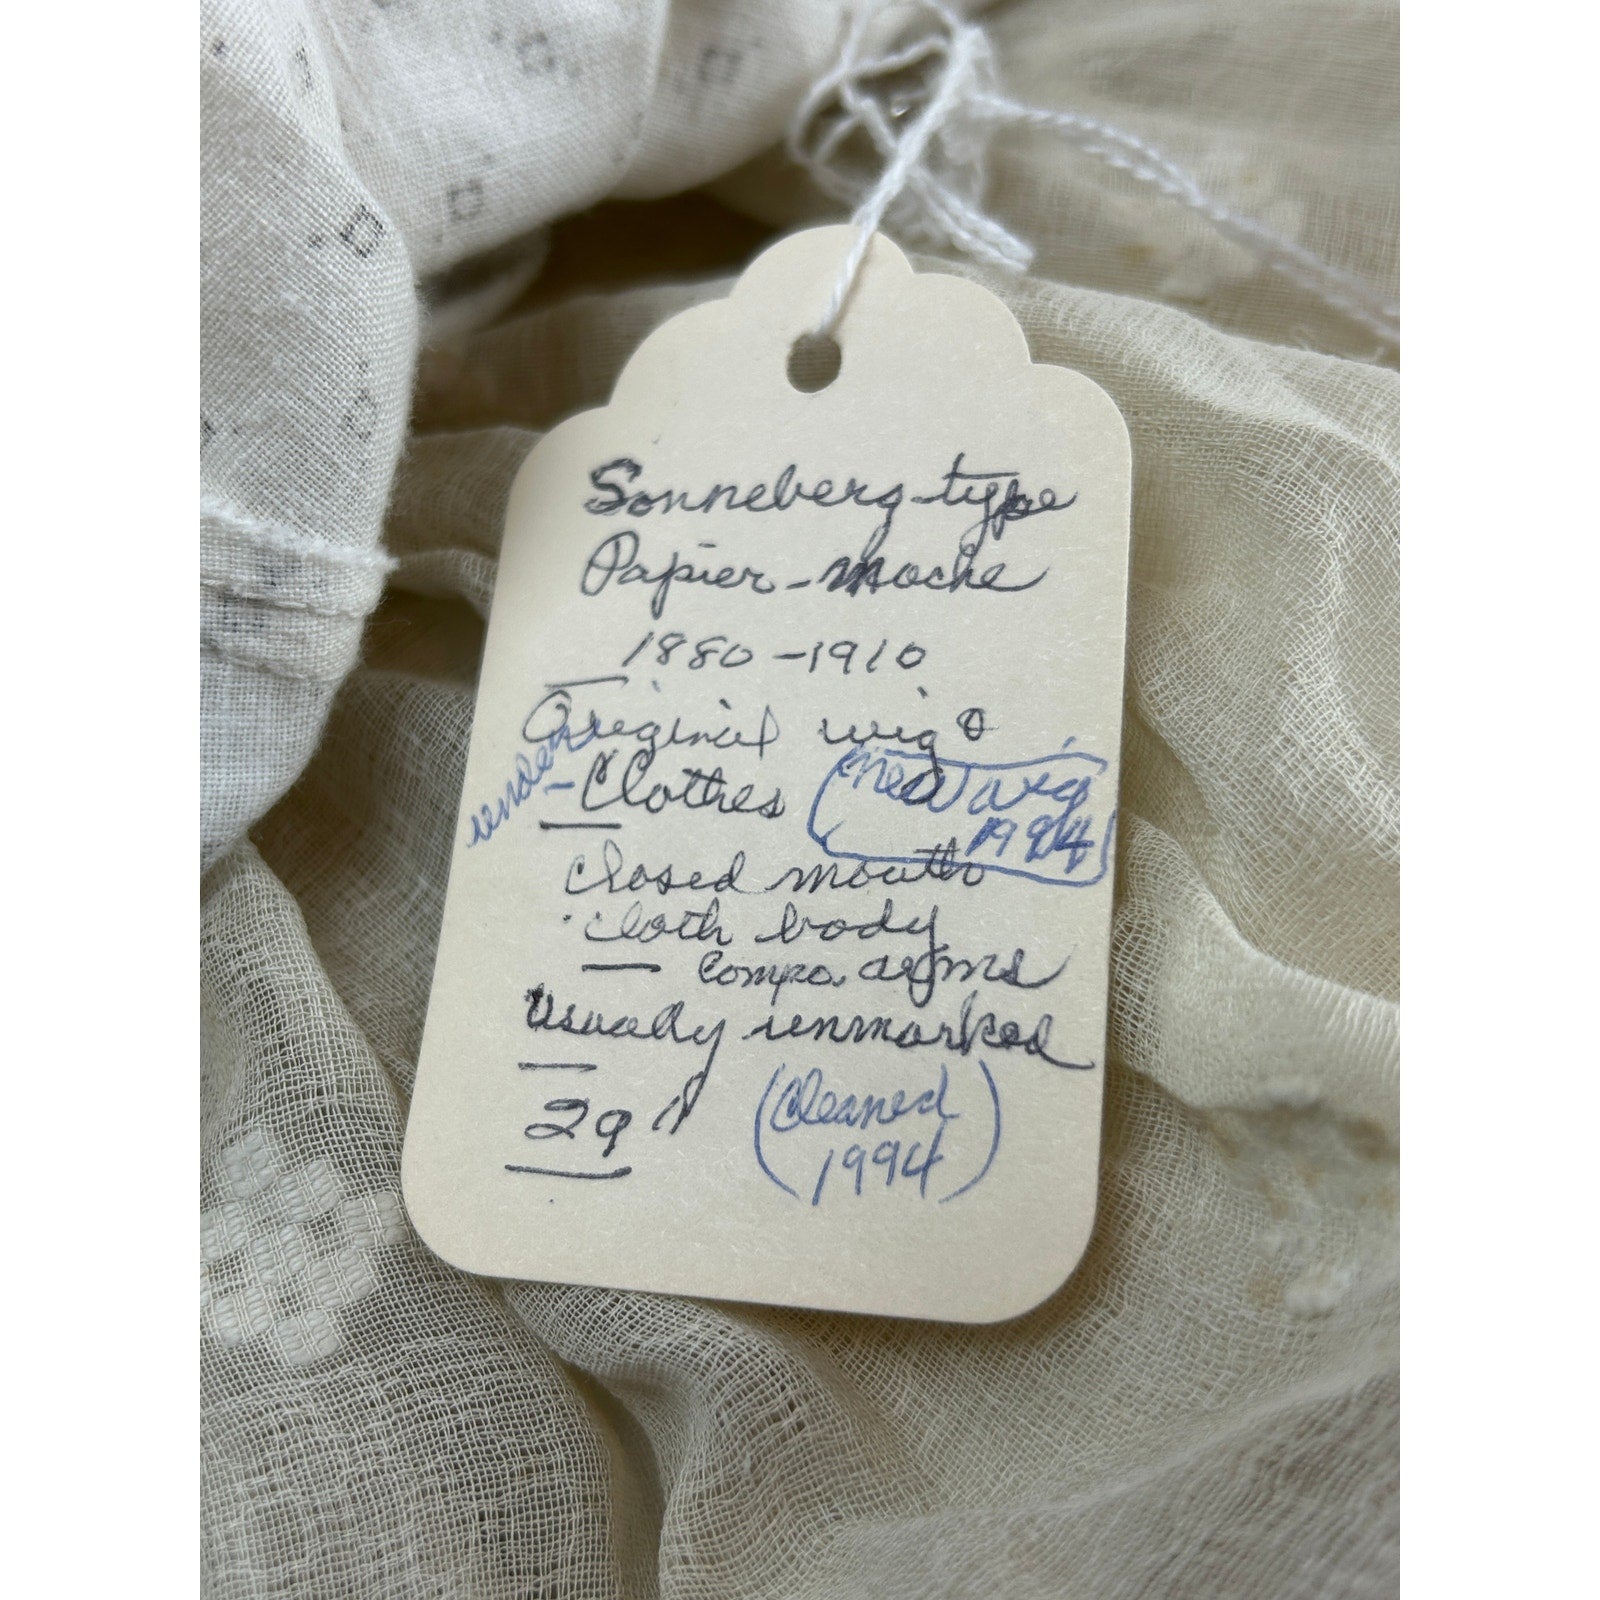 Sonneberg-type
Papier-mache
1880-1910
Original wig &
under - Clothes (new wig
1994)
closed mouth
cloth body
— compo. arms
Usually unmarked
29" (Cleaned
1994)